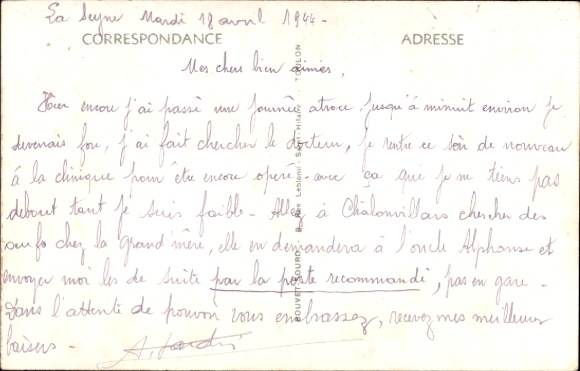 La Seyne Mardi 18 avril 1944 -
CORRESPONDANCE
ADRESSE
Mes chers bien aimés,
Hier encore j'ai passé une journée atroce jusqu'à minuit environ je
devenais fou, j'ai fait chercher le docteur, je rentre ce soir de nouveau
à la clinique pour être encore opéré - avec ça que je ne tiens pas
debout tant je suis faible - Allez à Châlonvillars chercher des
œufs chez la grand'mère, elle en demandera à l'oncle Alphonse et
envoyer moi les de suite par la poste recommandé, pas en gare -
Dans l'attente de pouvoir vous embrassez, recevez mes meilleurs
baisers -
BOUVET-SOURD - Rue Leblond - Saint-Hilaire - TOULON